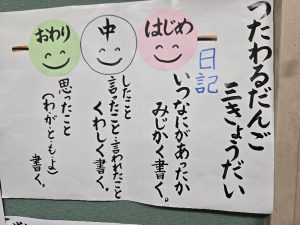 つたわるだんご
三きょうだい
日記
はじめ
いつなにがあったか
みじかく書く。
中
したこと
言ったこと・言われたこと
くわしく書く。
おわり
思ったこと
(わ・が・と・も・よ)
書く。